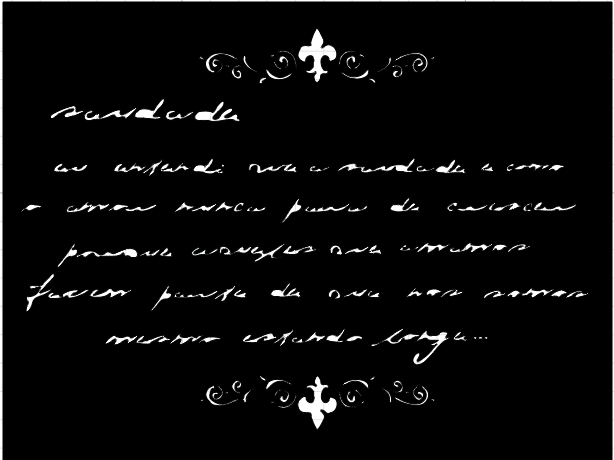 saudade
eu entendi que a saudade e como
o amor nunca para de crescer
porque aqueles que amamos
fazem parte de que nos somos
mesmo estando longe...